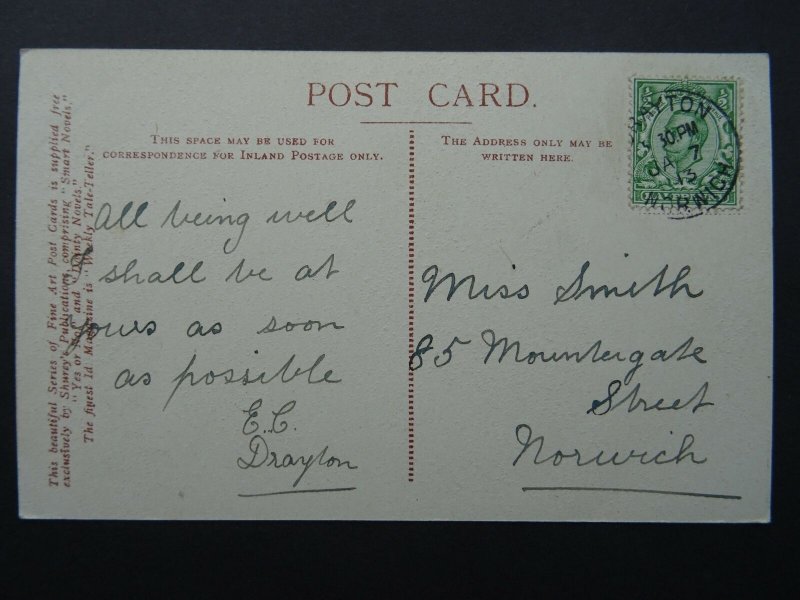 POST CARD.
THIS SPACE MAY BE USED FOR
CORRESPONDENCE FOR INLAND POSTAGE ONLY.
THE ADDRESS ONLY MAY BE
WRITTEN HERE.
This beautiful Series of Fine Art Post Cards is supplied free
exclusively by Shurey's Publications, comprising "Smart Novels,"
"Yes or No," and "Dainty Novels."
The finest 1d. Magazine is "Weekly Tale-Teller."
All being well
shall be at
yours as soon
as possible
E.C.
Drayton
Miss Smith
85 Mountergate
Street
Norwich
DRAYTON
30PM
JA 7
13
NORWICH